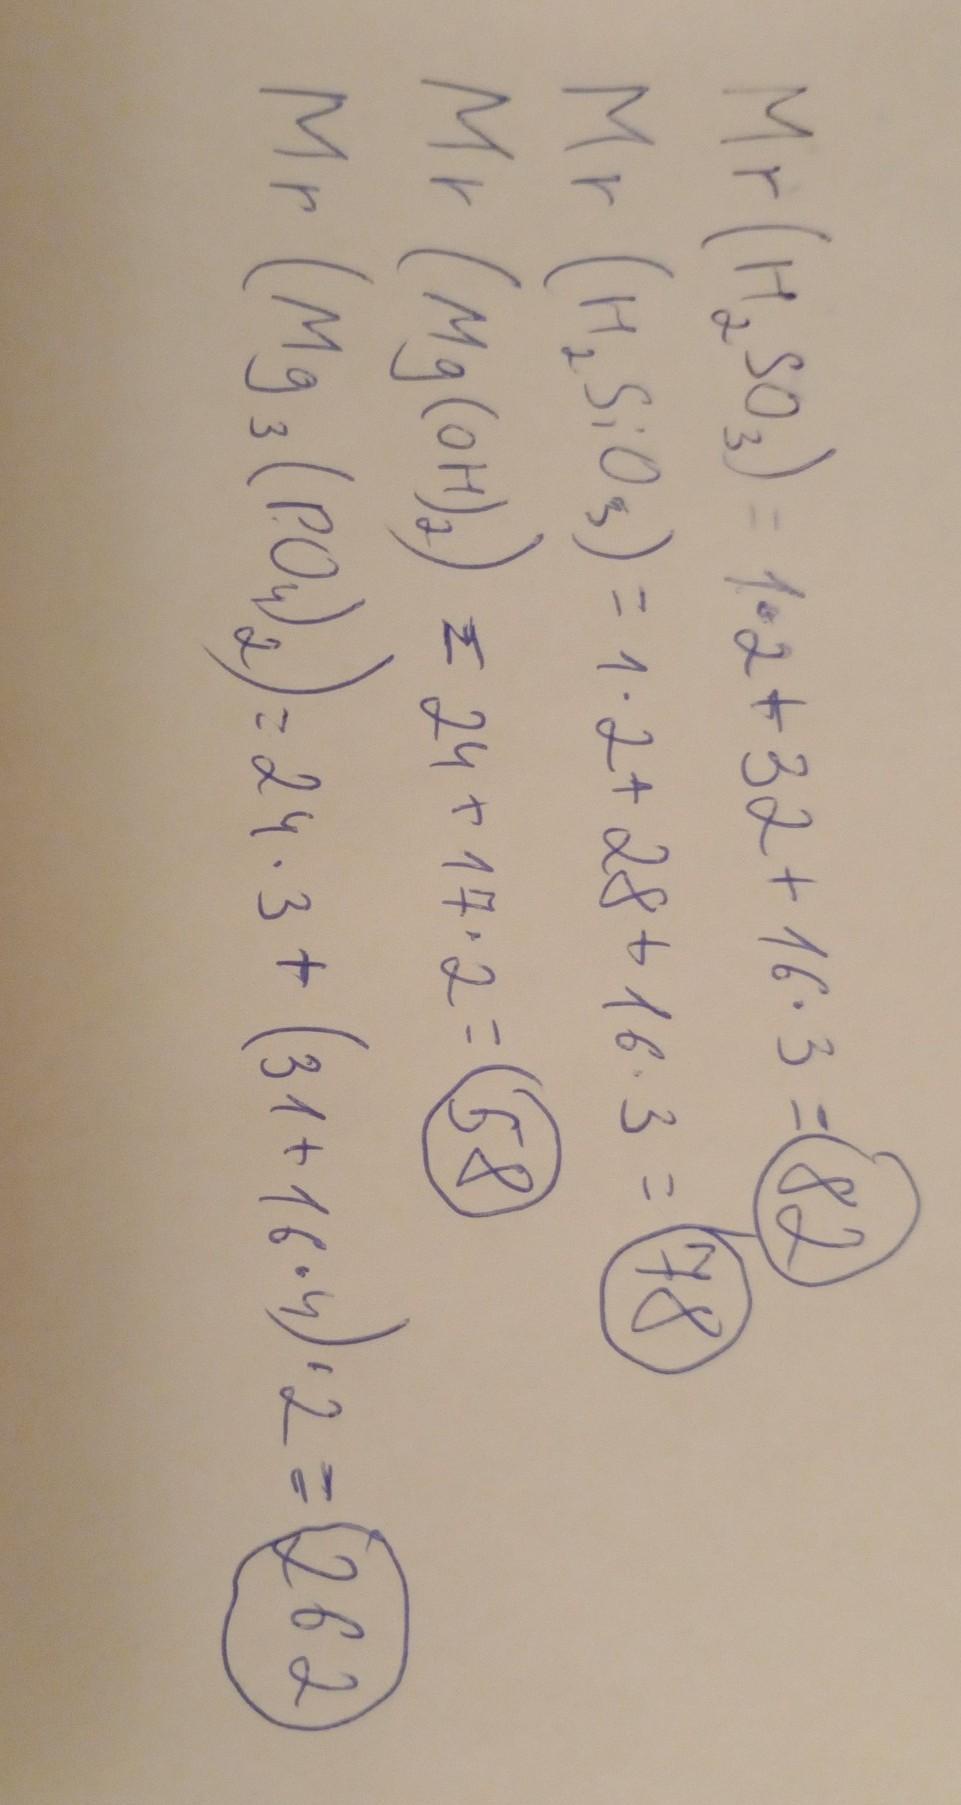 Mr(H₂SO₃) = 1·2+32+16·3=82
Mr(H₂SiO₃) = 1·2+28+16·3=78
Mr(Mg(OH)₂) = 24+17·2=58
Mr(Mg₃(PO₄)₂)=24·3+(31+16·4)·2=262